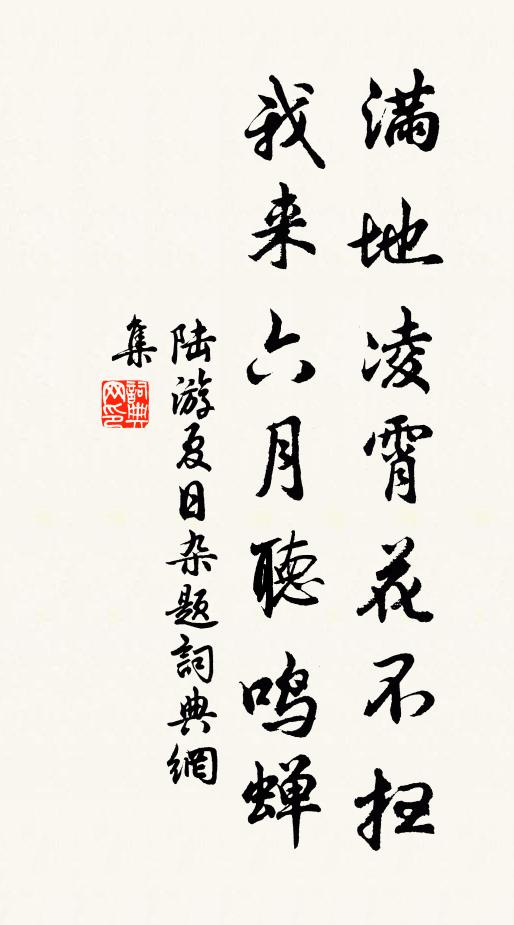 满地凌霄花不扫
我来六月聽鸣蝉
陆游夏日杂题詞典網
集
詞典网印